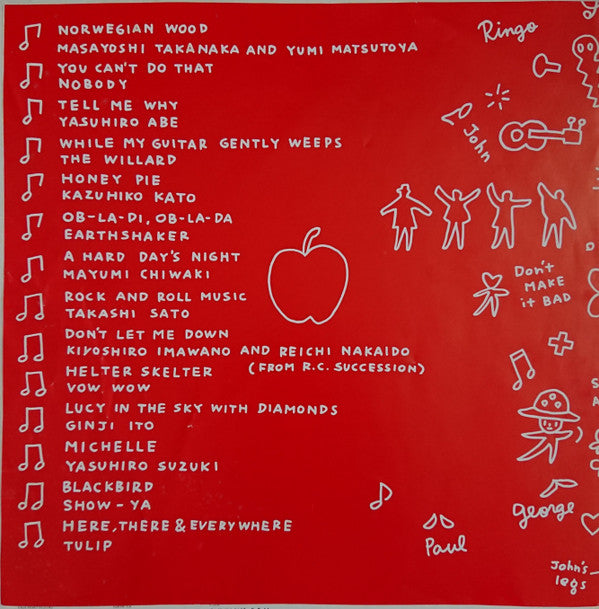 NORWEGIAN WOOD
MASAYOSHI TAKANAKA AND YUMI MATSUTOYA
YOU CAN'T DO THAT
NOBODY
TELL ME WHY
YASUHIRO ABE
WHILE MY GUITAR GENTLY WEEPS
THE WILLARD
HONEY PIE
KAZUHIKO KATO
OB-LA-DI, OB-LA-DA
EARTHSHAKER
A HARD DAY'S NIGHT
MAYUMI CHIWAKI
ROCK AND ROLL MUSIC
TAKASHI SATO
DON'T LET ME DOWN
KIYOSHIRO IMAWANO AND REICHI NAKAIDO
(FROM R.C. SUCCESSION)
HELTER SKELTER
VOW WOW
LUCY IN THE SKY WITH DIAMONDS
GINJI ITO
MICHELLE
YASUHIRO SUZUKI
BLACKBIRD
SHOW-YA
HERE, THERE & EVERYWHERE
TULIP
Ringo
John
Don't
MAKE
it BAD
George
Paul
John's
legs